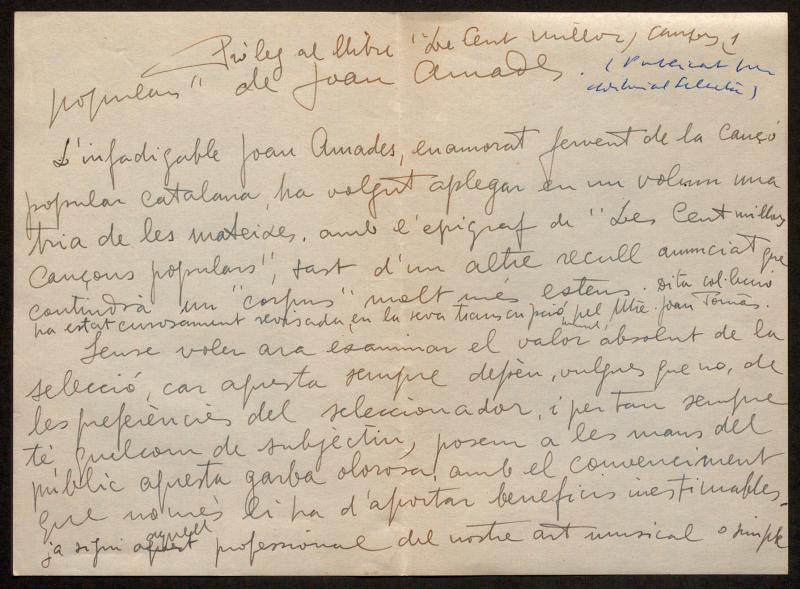 Pròleg al llibre "Les Cent millors cançons
populars" de Joan Amades. (Publicat per
editorial Selecta)
L'infadigable Joan Amades, enamorat fervent de la cançó
popular catalana, ha volgut aplegar en un volum una
tria de les mateixes, amb l'epígraf de "Les Cent millors
cançons populars", tast d'un altre recull anunciat que
contindrà un "corpus" molt més extens. Dita col·lecció
ha estat curosament revisada, en la seva transcripció pel Mtre. Joan Tomàs.
Sense voler ara examinar el valor absolut de la
selecció, car aquesta sempre depèn, vulgues que no, de
les preferències del seleccionador, i per tan sempre
té quelcom de subjectiu, posem a les mans del
públic aquesta garba olorosa, amb el convenciment
que només li ha d'aportar beneficis inestimables,
aquell
ja sigui professional del nostre art musical o simple